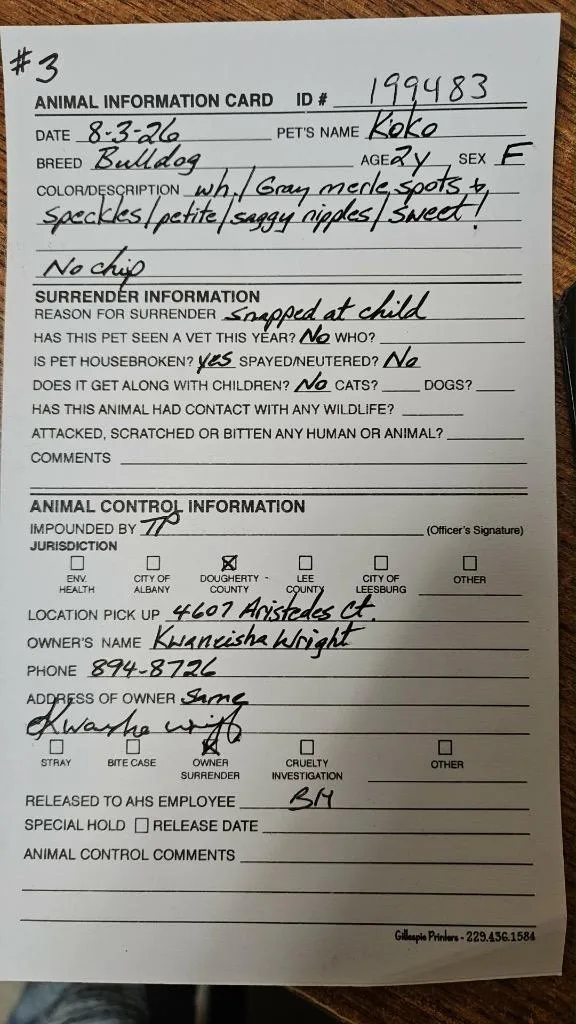 #3
ANIMAL INFORMATION CARD ID # 199483
DATE 8-3-26 PET'S NAME Koko
BREED Bulldog AGE 2y SEX F
COLOR/DESCRIPTION wh./Gray merle spots &
speckles/petite/saggy nipples/sweet!
No chip
SURRENDER INFORMATION
REASON FOR SURRENDER snapped at child
HAS THIS PET SEEN A VET THIS YEAR? No WHO?
IS PET HOUSEBROKEN? yes SPAYED/NEUTERED? No
DOES IT GET ALONG WITH CHILDREN? No CATS? DOGS?
HAS THIS ANIMAL HAD CONTACT WITH ANY WILDLIFE?
ATTACKED, SCRATCHED OR BITTEN ANY HUMAN OR ANIMAL?
COMMENTS
ANIMAL CONTROL INFORMATION
IMPOUNDED BY TP (Officer's Signature)
JURISDICTION
ENV. HEALTH CITY OF ALBANY DOUGHERTY - COUNTY LEE COUNTY CITY OF LEESBURG OTHER
LOCATION PICK UP 4607 Aristedes Ct.
OWNER'S NAME Kwaneisha Wright
PHONE 894-8726
ADDRESS OF OWNER Same
STRAY BITE CASE OWNER SURRENDER CRUELTY INVESTIGATION OTHER
RELEASED TO AHS EMPLOYEE BH
SPECIAL HOLD RELEASE DATE
ANIMAL CONTROL COMMENTS
Gillespie Printers - 229.436.1584